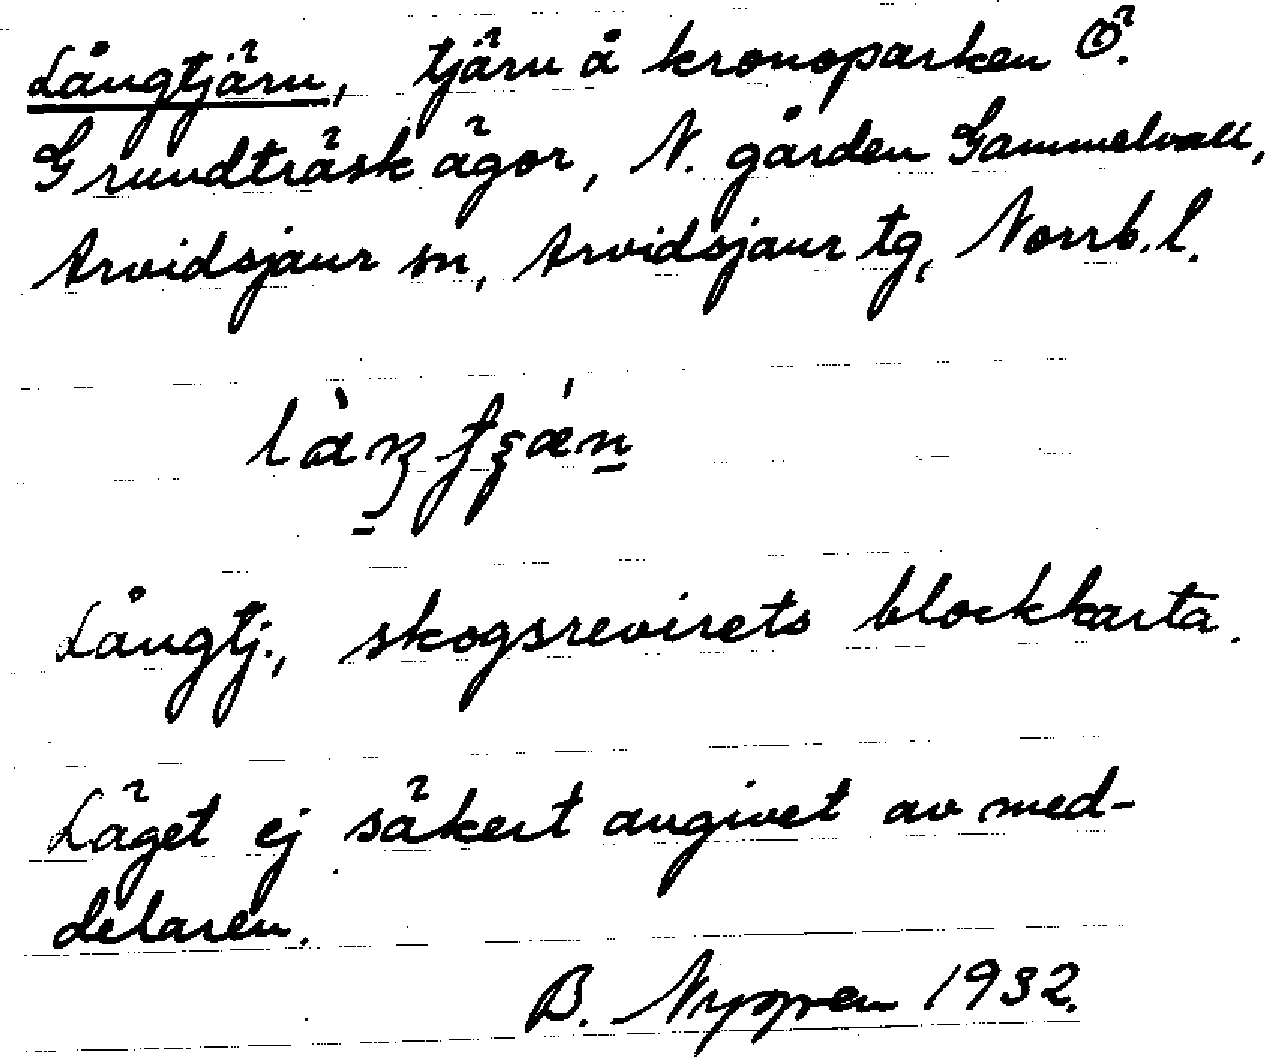 Långtjärn, tjärn å kronoparken Ö.
Grundträsk ägor, N. gården Gammelvall,
Arvidsjaur sn, Arvidsjaur tg, Norrb. l.
Långtj., skogsrevirets blockkarta.
Läget ej säkert angivet av med-
delaren.
B. Nygren 1932.